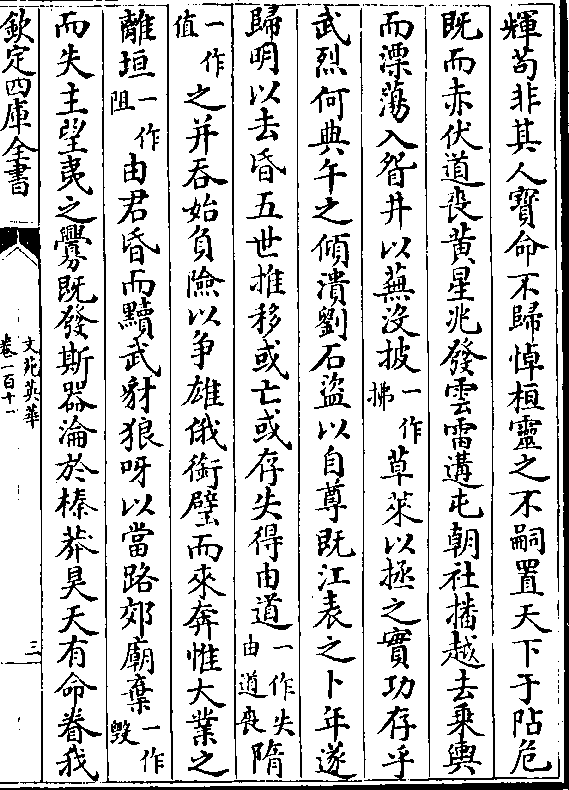 輝苟非其人寳命不歸悼桓靈之不嗣置天下于阽危
既而赤伏道喪黄星兆發雲雷遘屯朝社播越去乗輿
而漂蕩入眢井以蕪没披一作拂草萊以拯之實功存乎
武烈何典午之傾潰劉石盗以自尊既江表之卜年遂
歸明以去昏五世推移或亡或存失得由道一作失由道喪隋
一作值之并吞始負險以爭雄俄銜璧而來奔惟大業之
離垣一作阻由君昏而黷武豺狼呀以當路郊廟棄一作毁
而失主望夷之釁既發斯器淪於榛莽昊天有命眷我
欽定四庫全書
文苑英華
卷一百十一
三